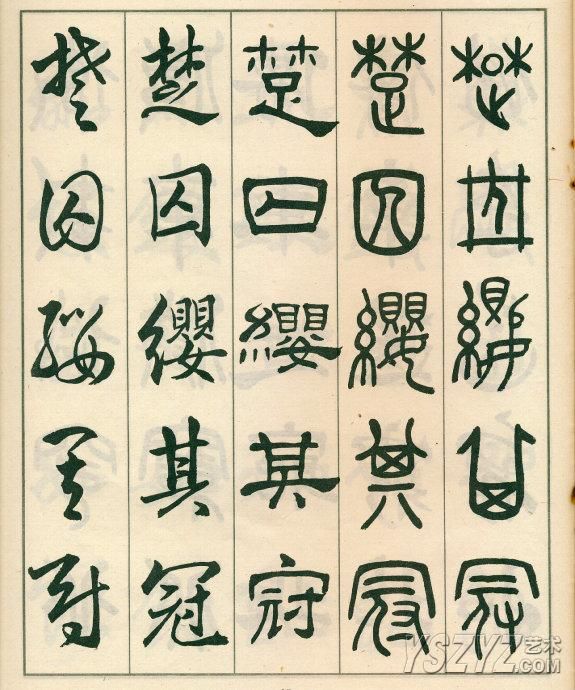 楚囚纓其冠
楚囚纓其冠
楚囚纓其冠
楚囚纓其冠
楚囚纓其冠
YSZYZ艺术
.COM